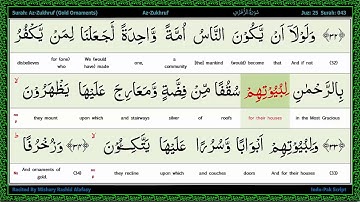 Surah: Az-Zukhruf (Gold Ornaments) Az-Zukhruf Juz: 25 Surah: 043
﴿٣٢﴾ وَلَوْلَآ اَنْ يَّكُوْنَ النَّاسُ اُمَّةً وَّاحِدَةً لَّجَعَلْنَا لِمَنْ يَّكْفُرُ
disbelieves for (one) who We (would have) made one, a community [the] mankind (would) become that And if not (32)
بِالرَّحْمٰنِ لِبُيُوْتِهِمْ سُقُفًا مِّنْ فِضَّةٍ وَّمَعَارِجَ عَلَيْهَا يَظْهَرُوْنَ
they mount upon which and stairways silver of roofs for their houses in the Most Gracious
﴿٣٣﴾ وَلِبُيُوْتِهِمْ اَبْوَابًا وَّسُرُرًا عَلَيْهَا يَتَّكِـُٔوْنَ ﴿٣٤﴾ وَزُخْرُفًا
And ornaments of gold. (34) they recline upon which and couches doors And for their houses (33)
Recited By Mishary Rashid Alafasy Indo-Pak Script